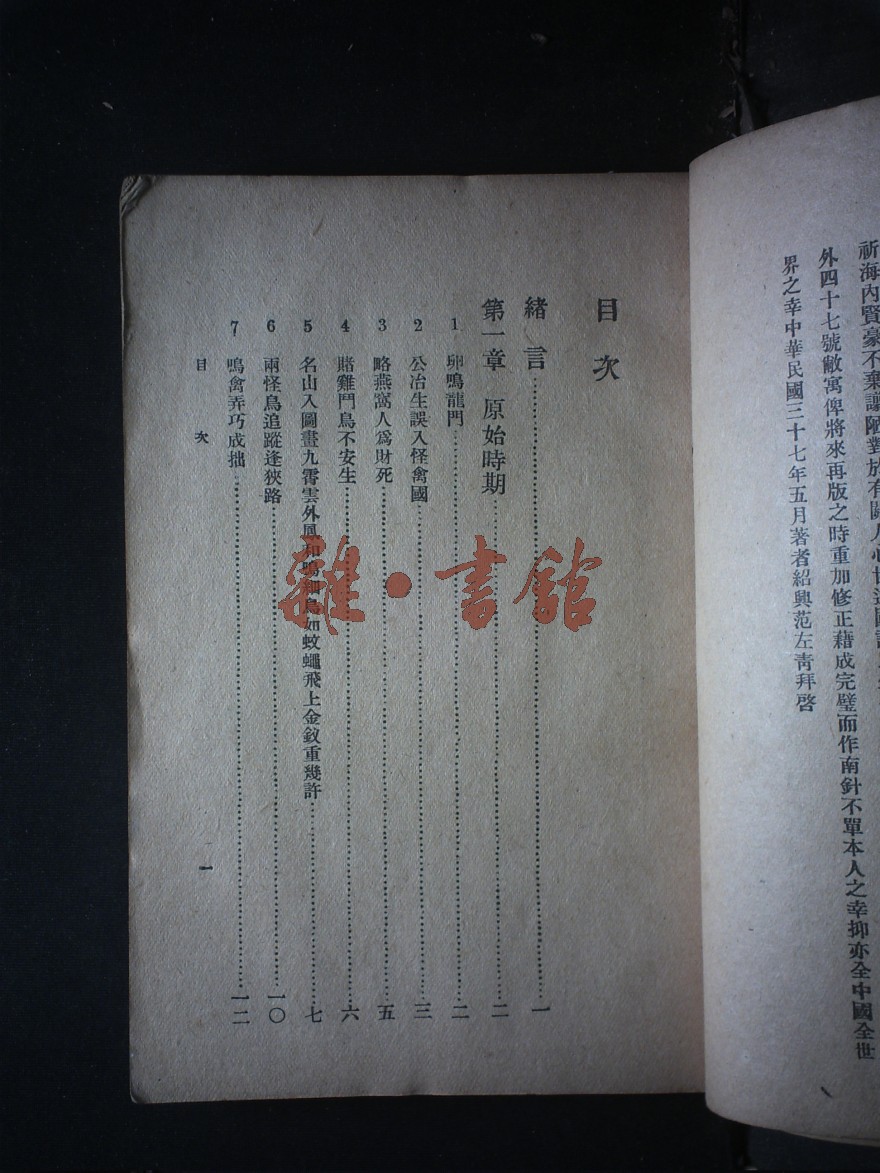 祈海內賢豪不棄譾陋對於有關人心世道國
外四十七號敝寓俾將來再版之時重加修正藉成完璧而作南針不單本人之幸抑亦全中國全世
界之幸中華民國三十七年五月著者紹興范左青拜啓
目次
緒言……一
第一章 原始時期……二
1 卵鳴龍門……二
2 公冶生誤入怪禽國……三
3 略燕窩人爲財死……五
4 賭雞鬥鳥不安生……六
5 名山入圖畫九霄雲外鳳和鳴細鳥如蚊蠅飛上金釵重幾許……七
6 兩怪鳥追蹤逢狹路……一〇
7 鳴禽弄巧成拙……一二
目次
一
雜·書館